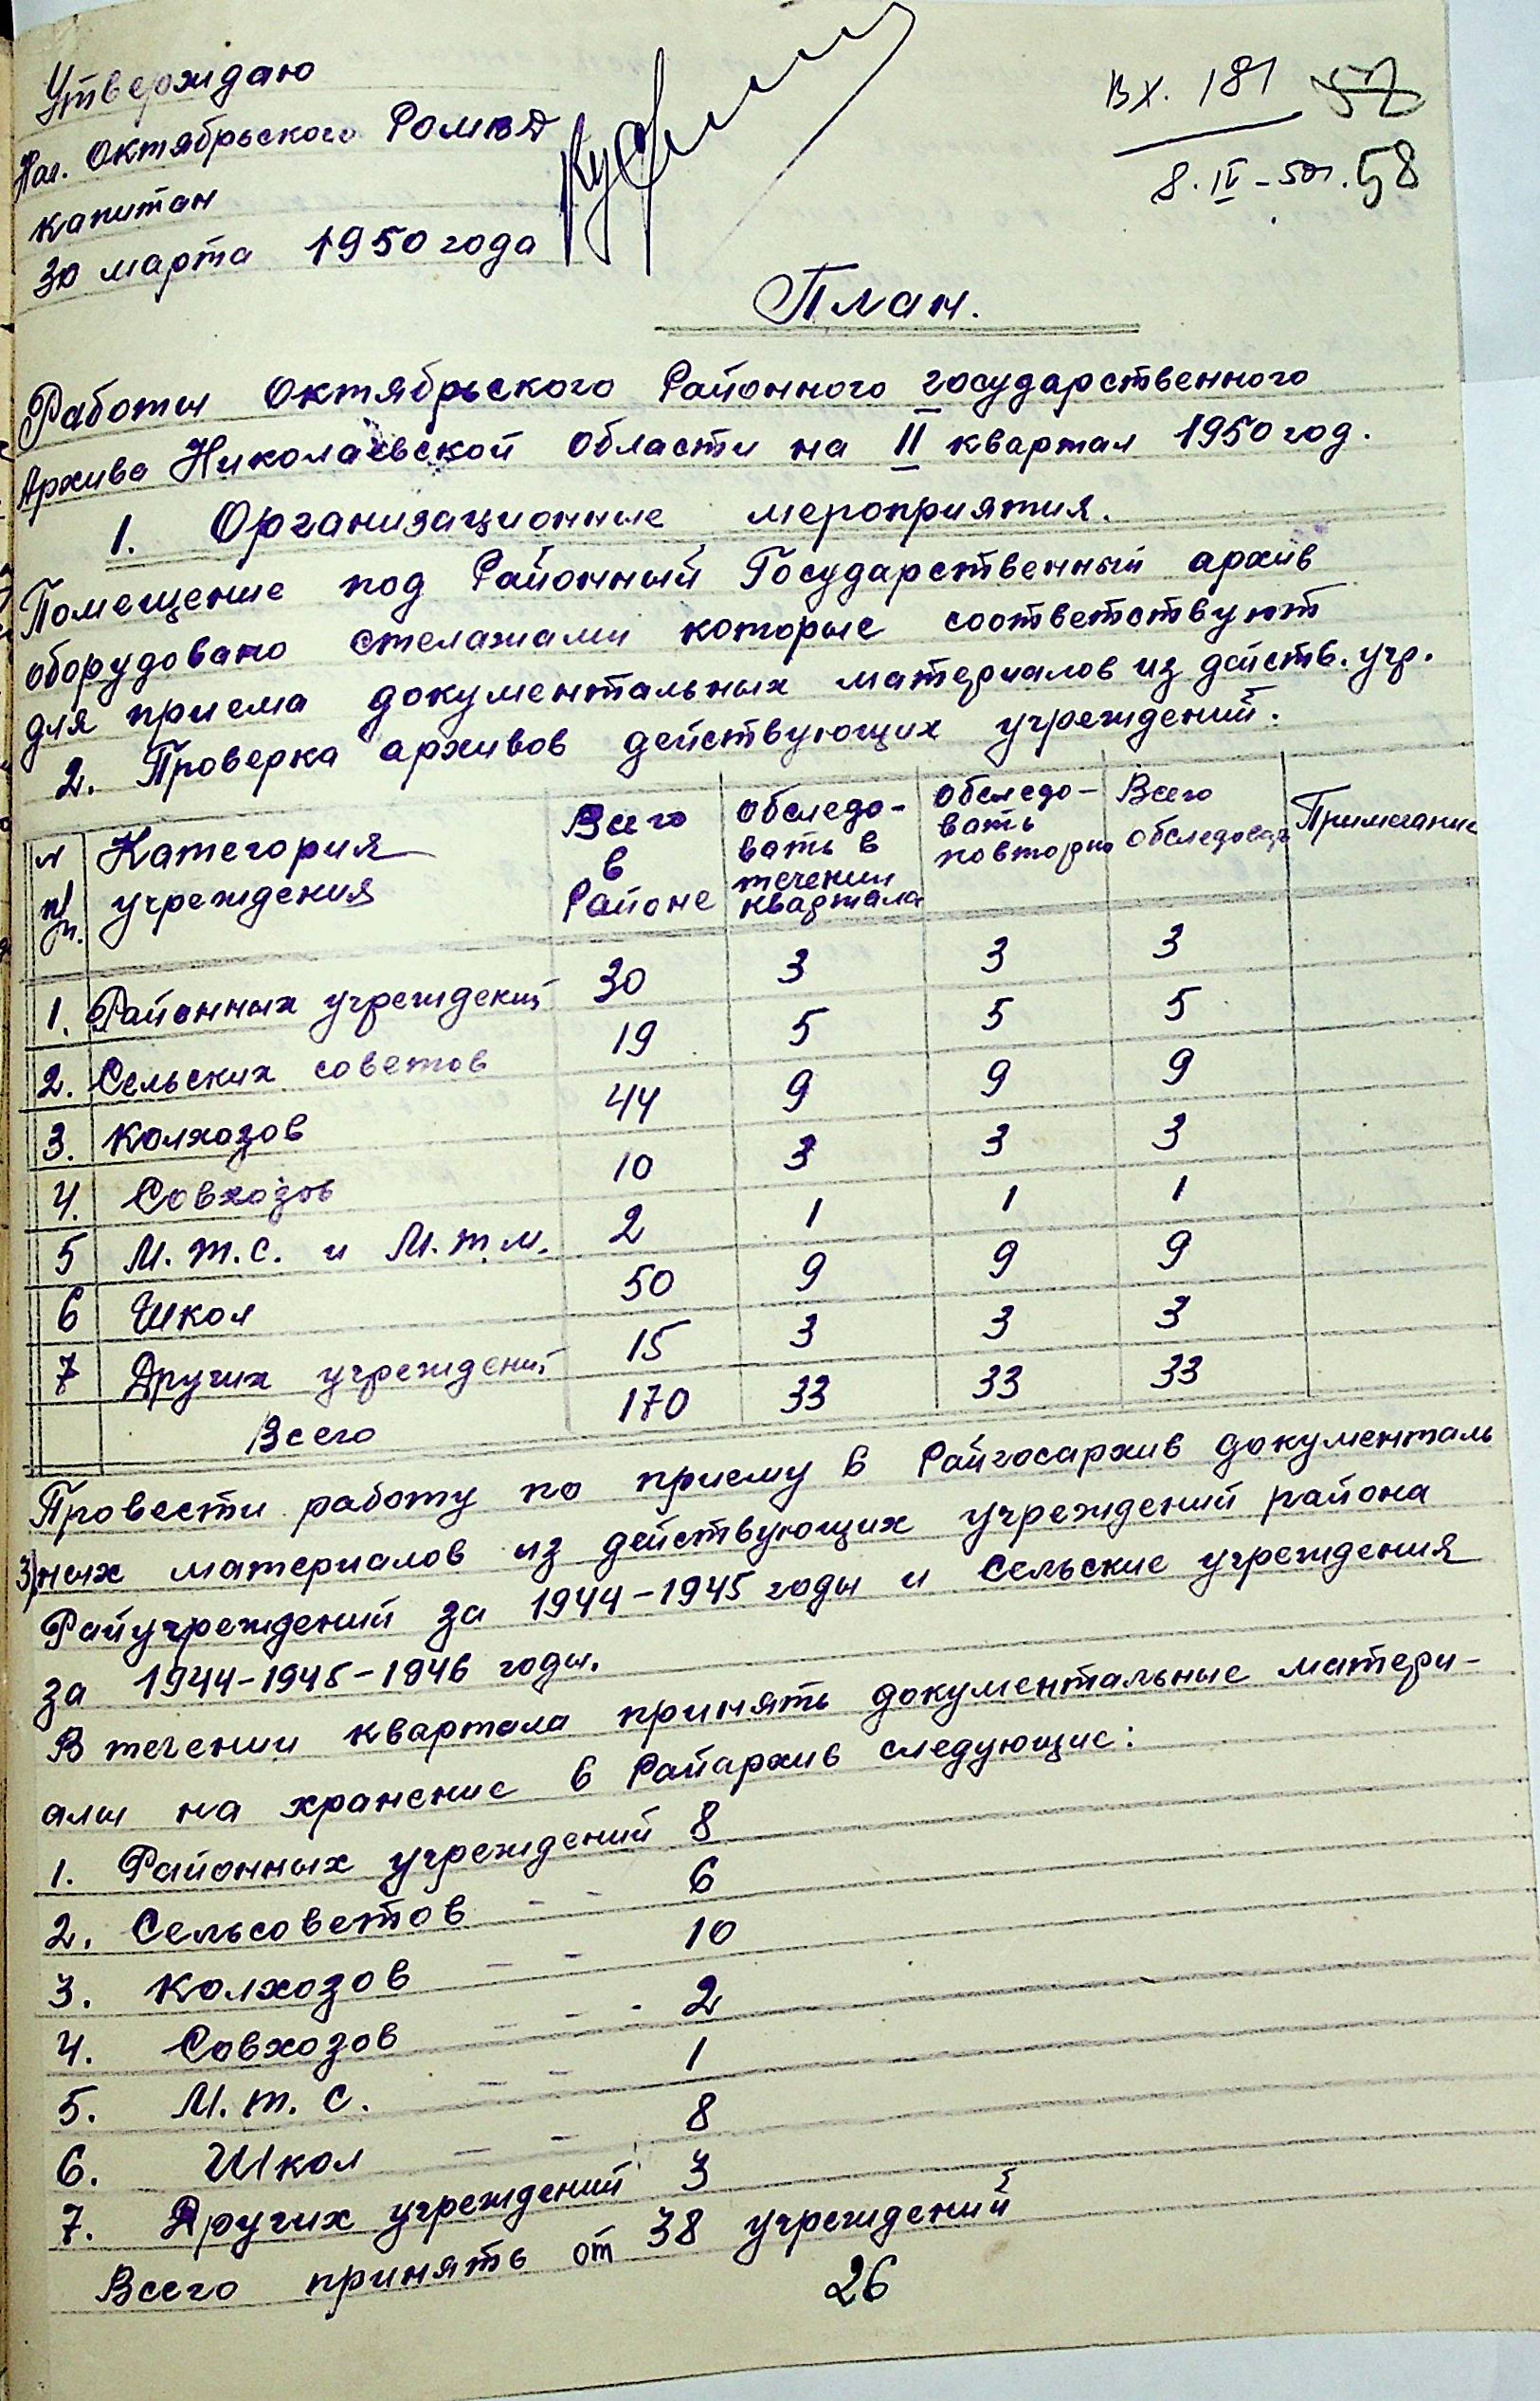 Утверждаю
Нач. Октябрьского РОМВД
капитан
30 марта 1950 года
Вх. 181 57
8.IV-50г. 58
План.
Работы Октябрьского Районного государственного
Архива Николаевской области на II квартал 1950 год.
1. Организационные мероприятия.
Помещение под Районный Государственный архив
оборудовано стелажами которые соответствуют
для приема документальных материалов из действ. учр.
2. Проверка архивов действующих учреждений.
№ п/п. Категория учреждения Всего в Районе Обследовать в течении квартала Обследовать повторно Всего обследовать Примечание
1. Районных учреждений 30 3 3 3
2. Сельских советов 19 5 5 5
3. Колхозов 44 9 9 9
4. Совхозов 10 3 3 3
5 М.т.с. и М.т.м. 2 1 1 1
6 Школ 50 9 9 9
7 Других учреждений 15 3 3 3
Всего 170 33 33 33
Провести работу по приему в Райгосархив документаль
3) ных материалов из действующих учреждений района
Райучреждений за 1944-1945 годы и Сельские учреждения
за 1944-1945-1946 годы.
В течении квартала принять документальные матери-
алы на хранение в Райархив следующие:
1. Районных учреждений 8
2. Сельсоветов - - 6
3. Колхозов - - 10
4. Совхозов - - - 2
5. М.т.с. - - 1
6. Школ - - 8
7. Других учреждений 3
Всего принять от 38 учреждений
26